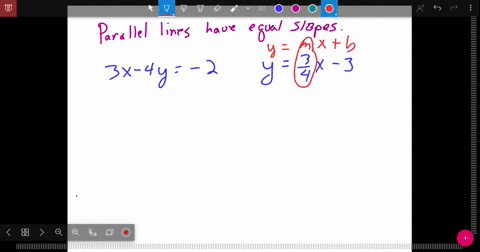 Parallel lines have equal slopes.
y = mx + b
3x-4y = -2
y = 3/4 x - 3